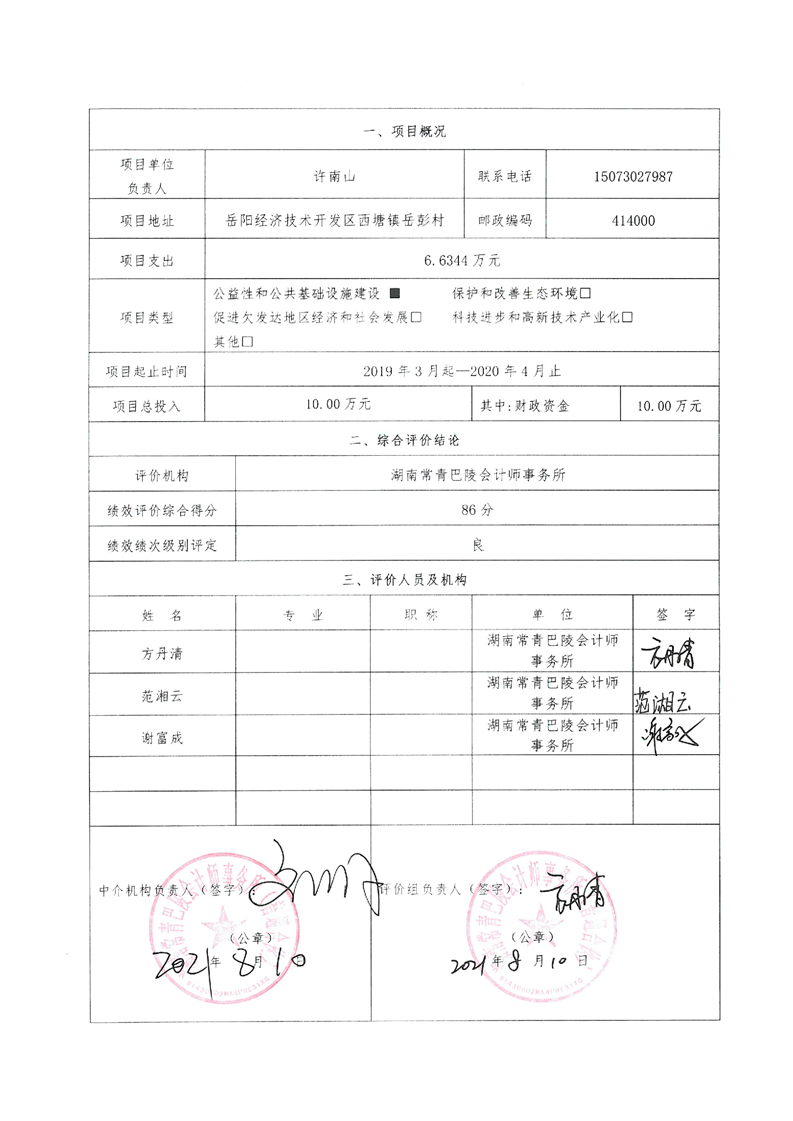 一、项目概况
项目单位
负责人
许南山
联系电话
15073027987
项目地址
岳阳经济技术开发区西塘镇岳彭村
邮政编码
414000
项目支出
6.6344 万元
项目类型
公益性和公共基础设施建设 ■ 保护和改善生态环境□
促进欠发达地区经济和社会发展□ 科技进步和高新技术产业化□
其他□
项目起止时间
2019 年 3 月起—2020 年 4 月止
项目总投入
10.00 万元
其中:财政资金
10.00 万元
二、综合评价结论
评价机构
湖南常青巴陵会计师事务所
绩效评价综合得分
86 分
绩效绩次级别评定
良
三、评价人员及机构
姓 名
专 业
职 称
单 位
签 字
方丹清
湖南常青巴陵会计师
事务所
方丹清
范湘云
湖南常青巴陵会计师
事务所
范湘云
谢富成
湖南常青巴陵会计师
事务所
谢富成
中介机构负责人（签字）:
（公章）
2021 年 8 月 10 日
评价组负责人（签字）: 方丹清
（公章）
2021 年 8 月 10 日